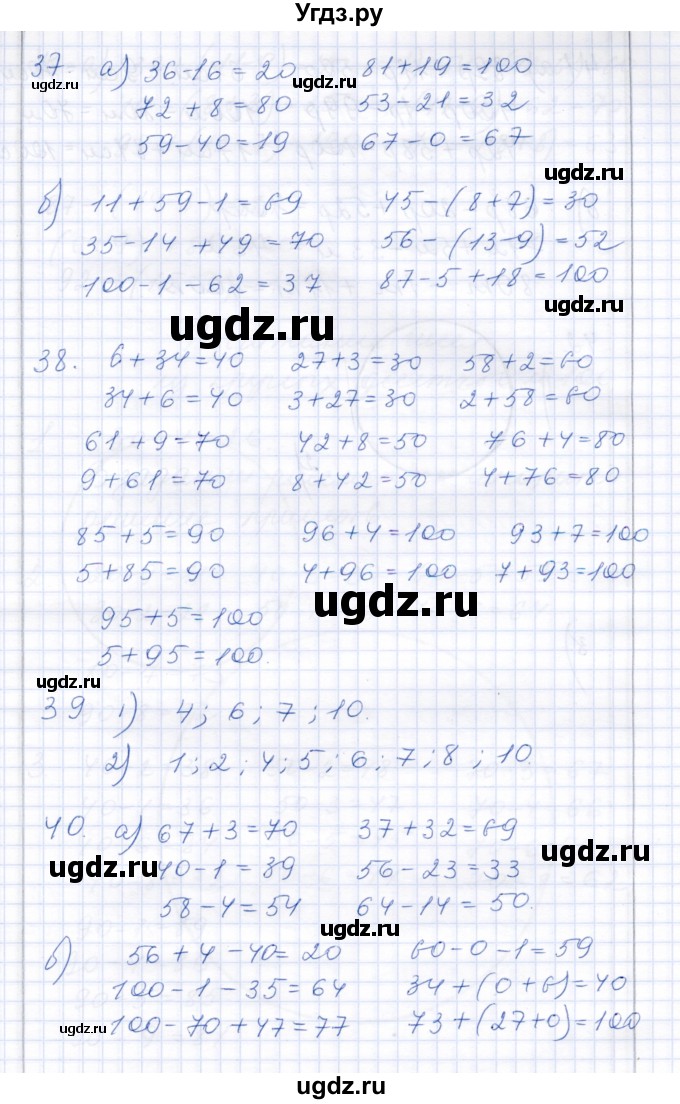 Угдз.ру
37. а) 36-16=20 81+19=100
ugdz.ru
72+8=80 53-21=32
59-40=19 67-0=67
ugdz.ru
б) 11+59-1=69 45-(8+7)=30
35-14+49=70 56-(13-9)=52
100-1-62=37 87-5+18=100
ugdz.ru
ugdz.ru
38. 6+34=40 27+3=30 58+2=60
34+6=40 3+27=30 2+58=60
61+9=70 42+8=50 76+4=80
9+61=70 8+42=50 4+76=80
85+5=90 96+4=100 93+7=100
5+85=90 4+96=100 7+93=100
ugdz.ru
95+5=100
5+95=100.
ugdz.ru
39 1) 4; 6; 7; 10.
2) 1; 2; 4; 5; 6; 7; 8; 10.
40. а) 67+3=70 37+32=69
ugdz.ru
ugdz.ru
40-1=39 56-23=33
58-4=54 64-14=50.
б) 56+4-40=20 60-0-1=59
100-1-35=64 34+(0+6)=40
ugdz.ru
100-70+47=77 73+(27+0)=100
ugdz.ru